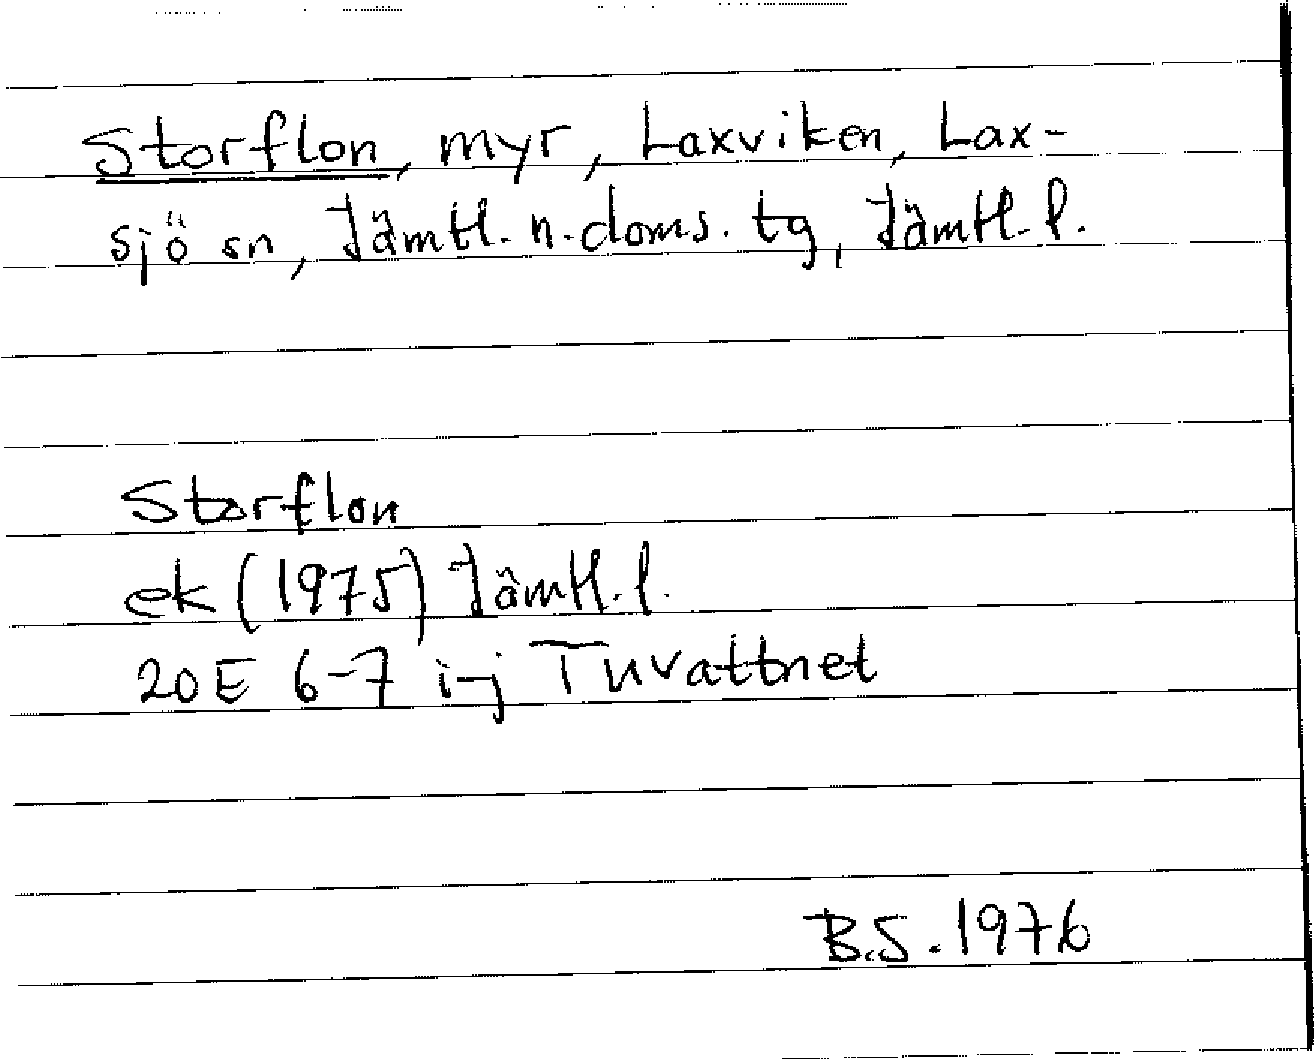 Storflon, myr, Laxviken, Lax-
sjö sn, Jämtl. n. doms. tg, Jämtl. l.
Storflon
ek (1975) Jämtl. l.
20E 6-7 i-j Tuvattnet
B.S. 1976